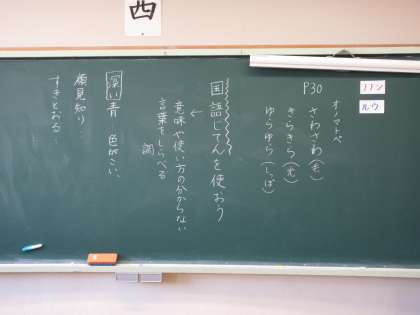 西
ノソン
ルウ
P30
オノマトペ
さわさわ(毛)
きらきら(光)
ゆらゆら(しっぽ)
国語じてんを使おう
↓
意味や使い方の分からない
言葉をしらべる
調
深い青 色がこい、
顔見知り…
すきとおる…